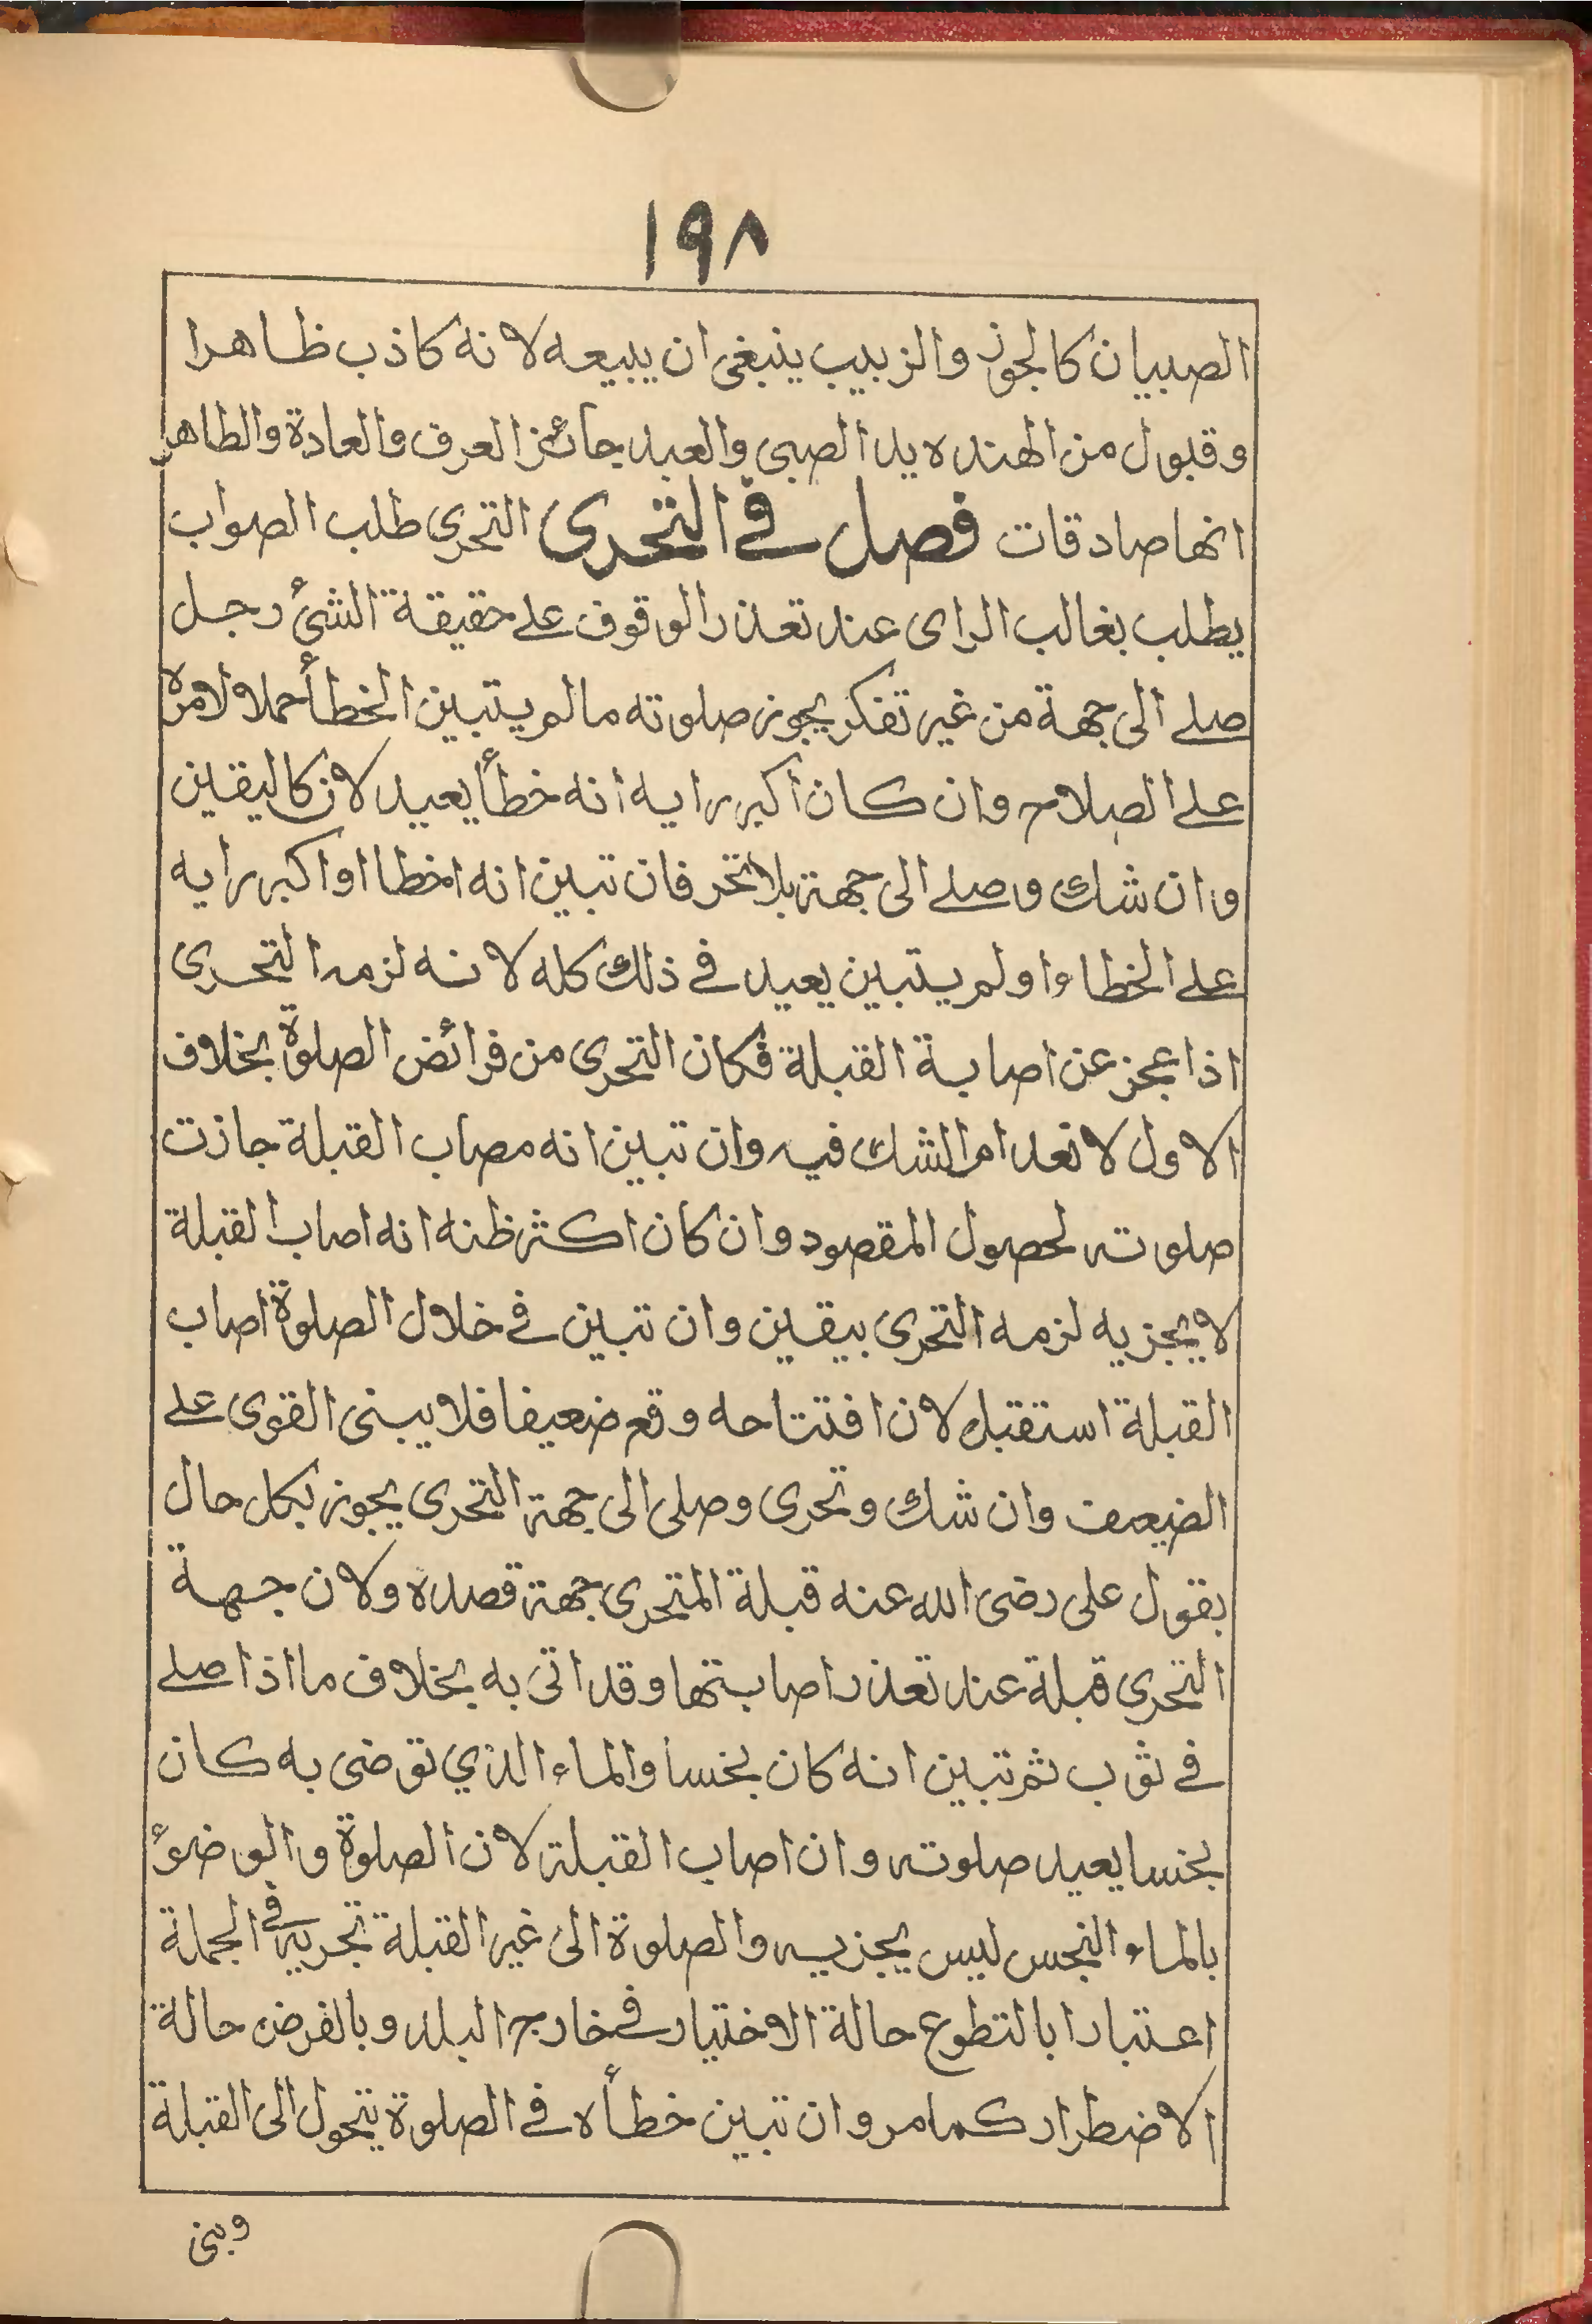 ١٩٨
الصبيان كالجوز والزبيب ينبغى ان يبيعه لانه كاذب ظاهرا
وقبول من الهنده يدا الصبى والعبد جائز العرف والعادة والظاهر
انها صادقات فصل فے التحرى التحرى طلب الصواب
يطلب بغالب الراى عند تعذر الوقوف علے حقيقة الشئ رجل
صلے الى جهة من غير تفكر يجوز صلوته مالم يتبين الخطأ حملا ولامره
علے الصلاح وان كان أكبر رايه انه خطأ يعيد لان كاليقين
وان شك وصلے الى جهة بلا تحر فان تبين انه اخطا او اكبر رايه
علے الخطاء او لم يتبين يعيد فے ذلك كله لانه لزمه التحرى
اذا عجز عن اصابة القبلة فكان التحرى من فرائض الصلوة بخلاف
الاول لانعدام الشك فيه وان تبين انه مصاب القبلة جازت
صلوته لحصول المقصود وان كان اكثر ظنه انه اصاب القبلة
لا يجزيه لزمه التحرى بيقين وان تبين فے خلال الصلوة اصاب
القبلة استقبل لان افتتاحه وقع ضعيفا فلا يبنى القوى علے
الضعيف وان شك وتحرى وصلى الى جهة التحرى يجوز بكل حال
بقول على رضى الله عنه قبلة المتحرى جهة قصده ولان جهة
التحرى قبلة عند تعذر اصابتها وقد اتى به بخلاف ما اذا صلے
فے ثوب ثم تبين انه كان نجسا والماء الذي توضى به كان
نجسا يعيد صلوته وان اصاب القبلة لان الصلوة والوضؤ
بالماء النجس ليس يجزيه والصلوة الى غير القبلة تجزيه فے الجملة
اعتبارا بالتطوع حالة الاختيار فے خارج البلد وبالفرض حالة
الاضطرار كما مر وان تبين خطأه فے الصلوة يتحول الى القبلة
وبنى